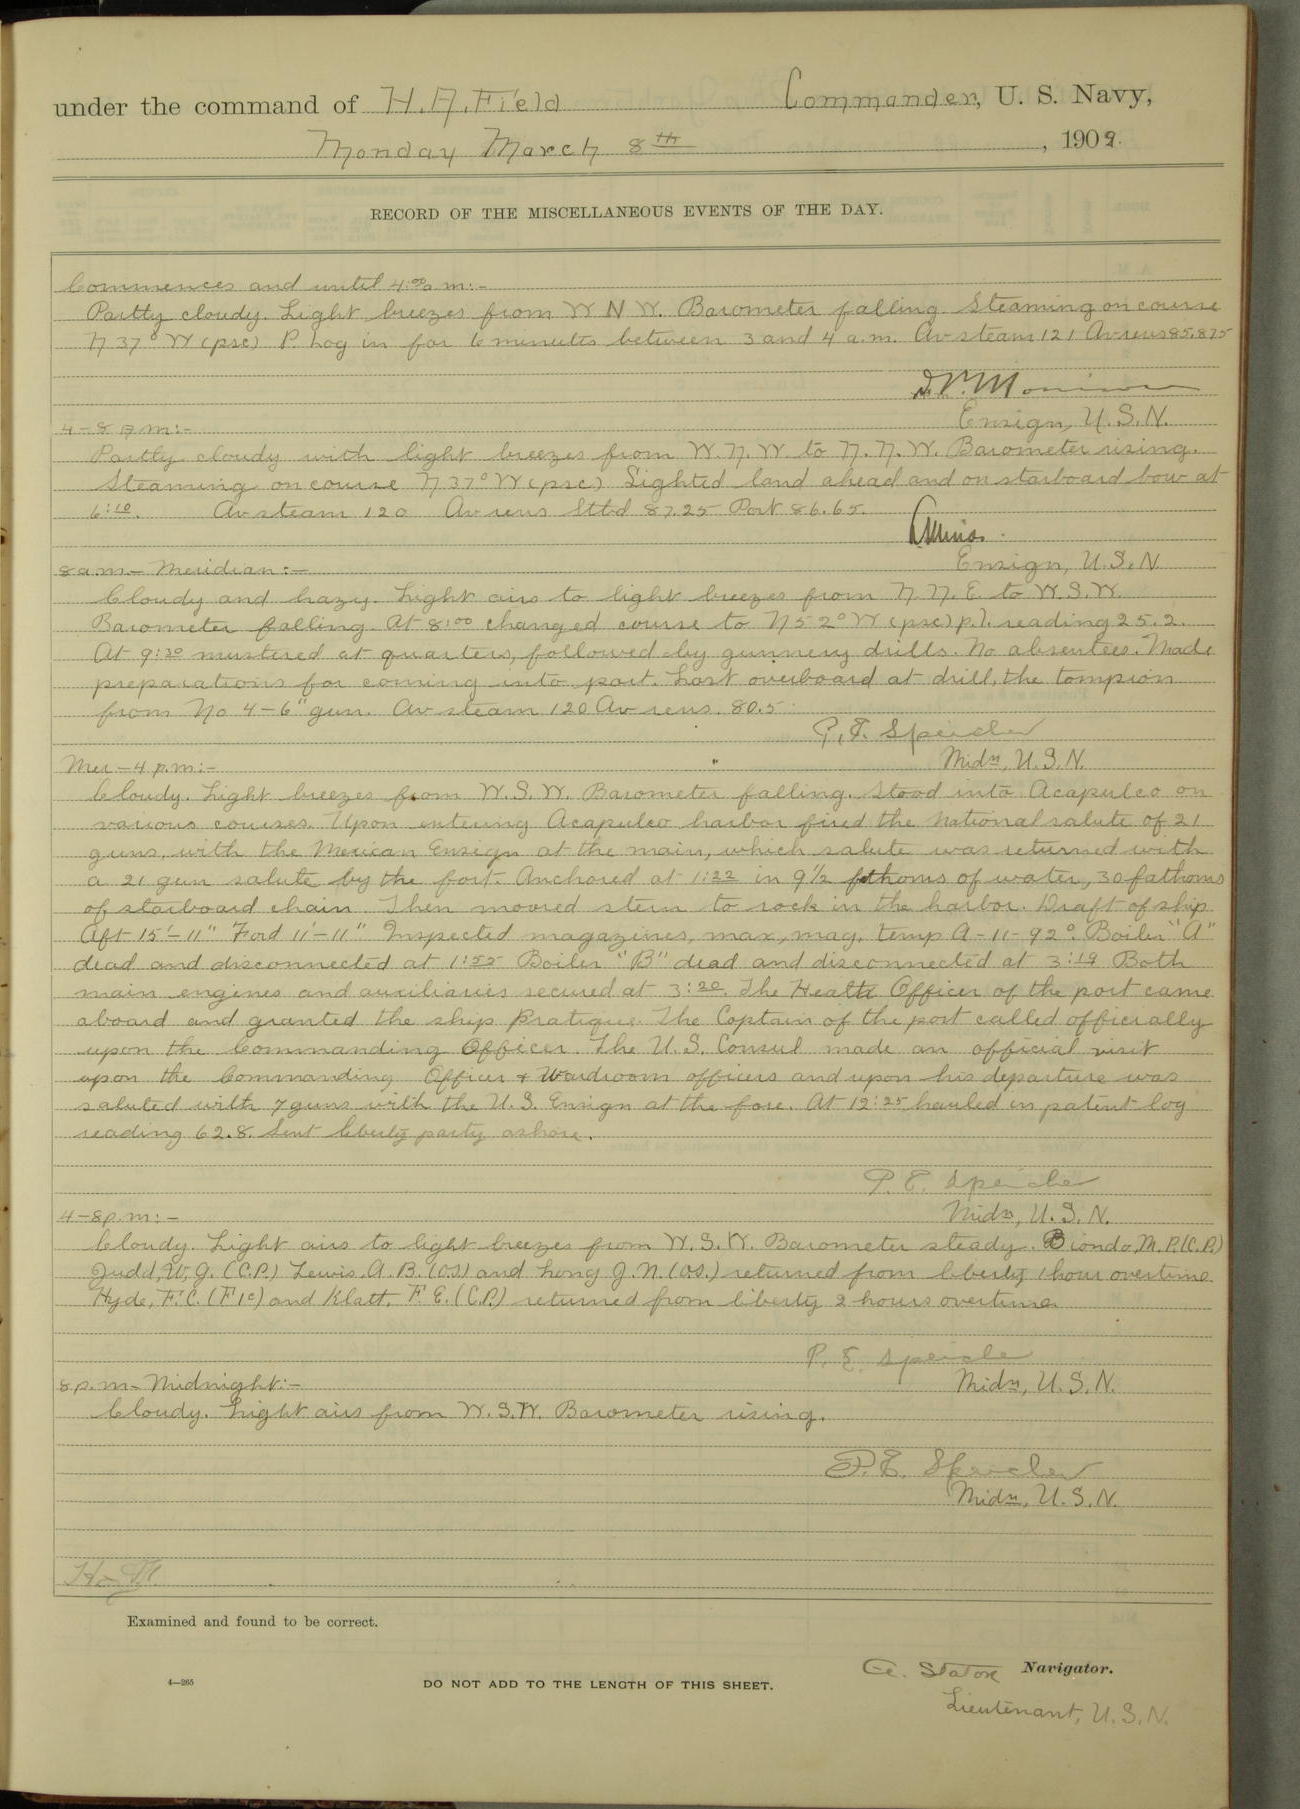 under the command of H. A. Field Commander, U. S. Navy,
Monday March 8th, 1909.
RECORD OF THE MISCELLANEOUS EVENTS OF THE DAY.
Commences and until 4:00 a m:-
Partly cloudy. Light breezes from W N W. Barometer falling. Steaming on course
N 37° W (psc) P. Log in for 6 minutes between 3 and 4 a.m. Av steam 121 Av revs 85.875
Ensign, U.S.N.
4-8 a m:-
Partly cloudy with light breezes from W.N.W to N.N.W. Barometer rising.
Steaming on course N 37° W (psc) Sighted land ahead and on starboard bow at
6:10. Av steam 120 Av revs Stbd 87.25 Port 86.65.
Ensign, U.S.N
8 a.m - Meridian:-
Cloudy and hazy. Light airs to light breezes from N.N.E to W.S.W.
Barometer falling. At 8:00 changed course to N 52° W (psc) p.l. reading 25.2.
At 9:30 mustered at quarters, followed by gunnery drills. No absentees. Made
preparations for coming into port. Lost overboard at drill, the tompion
from No 4-6" gun. Av steam 120 Av revs. 80.5
P. E. Speicher
Midn, U.S.N.
Mer-4 p.m:-
Cloudy. Light breezes from W.S.W. Barometer falling. Stood into Acapulco on
various courses. Upon entering Acapulco harbor fired the National salute of 21
guns, with the Mexican Ensign at the main, which salute was returned with
a 21 gun salute by the fort. Anchored at 1:22 in 9½ fathoms of water, 30 fathoms
of starboard chain. Then moored stern to rock in the harbor. Draft of ship
Aft 15'-11" Ford 11'-11" Inspected magazines, max, mag. temp A-11-92°. Boiler "A"
dead and disconnected at 1:55 Boiler "B" dead and disconnected at 3:19 Both
main engines and auxiliaries secured at 3:20. The Health Officer of the port came
aboard and granted the ship Pratique. The Captain of the port called officially
upon the Commanding Officer. The U.S. Consul made an official visit
upon the Commanding Officer & Wardroom officers and upon his departure was
saluted with 7 guns with the U.S. Ensign at the fore. At 12:25 hauled in patent log
reading 62.8. Sent liberty party ashore.
P. E. Speicher
Midn, U.S.N.
4-8 p.m:-
Cloudy. Light airs to light breezes from W.S.W. Barometer steady. Biondo, M.P. (C.P.)
Judd, W.J. (C.P.) Lewis, A.B. (O.S) and Long J.N. (O.S.) returned from liberty 1 hour overtime
Hyde, F.C. (F1c) and Klatt, F.E. (C.P.) returned from liberty 2 hours overtime.
P. E. Speicher
Midn, U.S.N.
8 p.m - Midnight:-
Cloudy. Light airs from W.S.W. Barometer rising.
P. E. Speicher
Midn, U.S.N.
Examined and found to be correct.
Navigator.
4—265
DO NOT ADD TO THE LENGTH OF THIS SHEET.
Lieutenant, U.S.N.